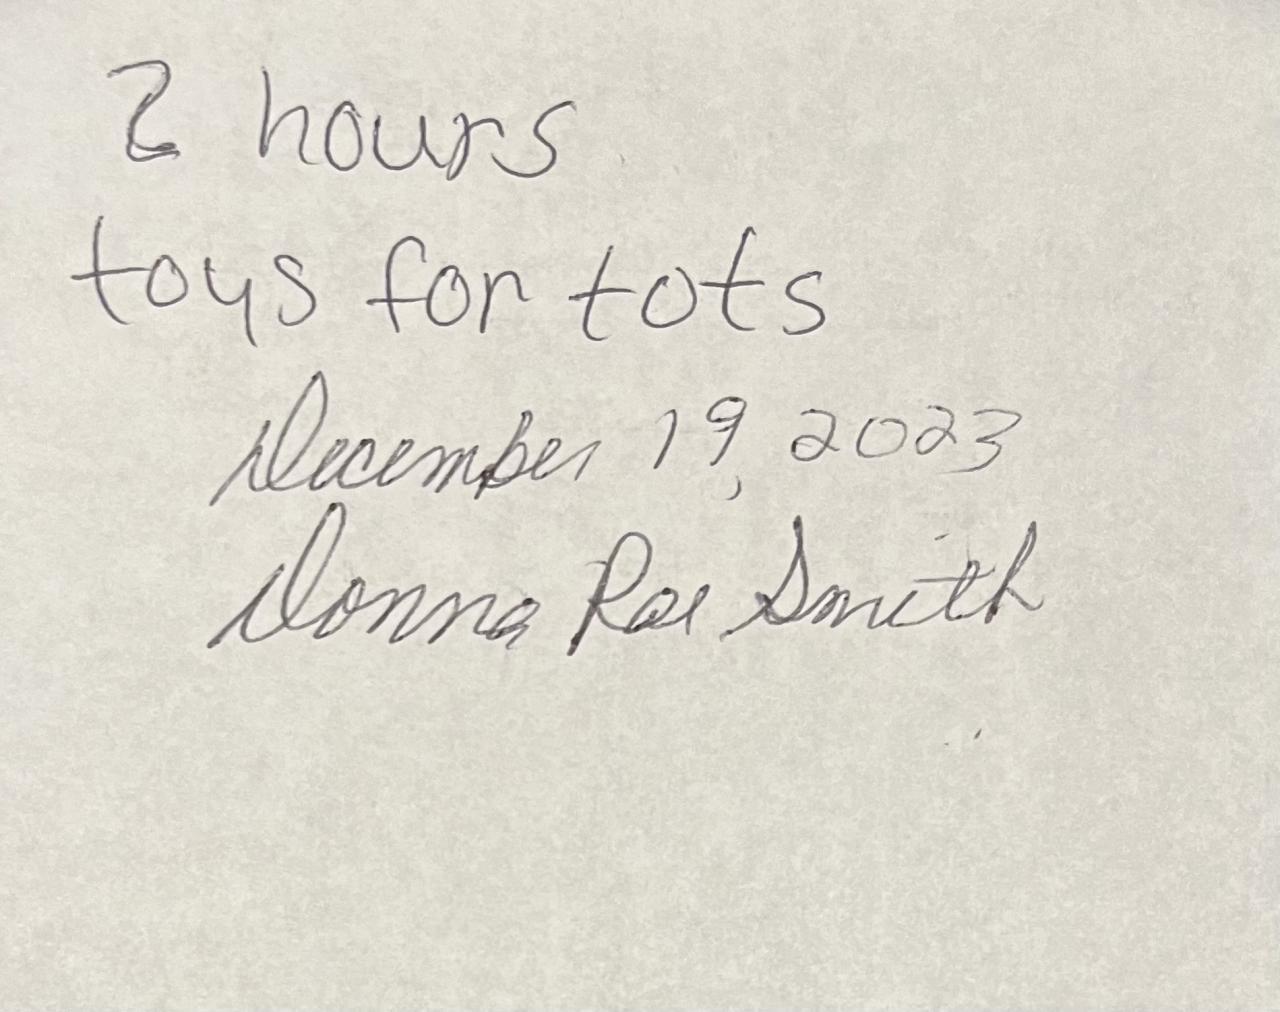 2 hours
toys for tots
December 19, 2023
Donna Rae Smith